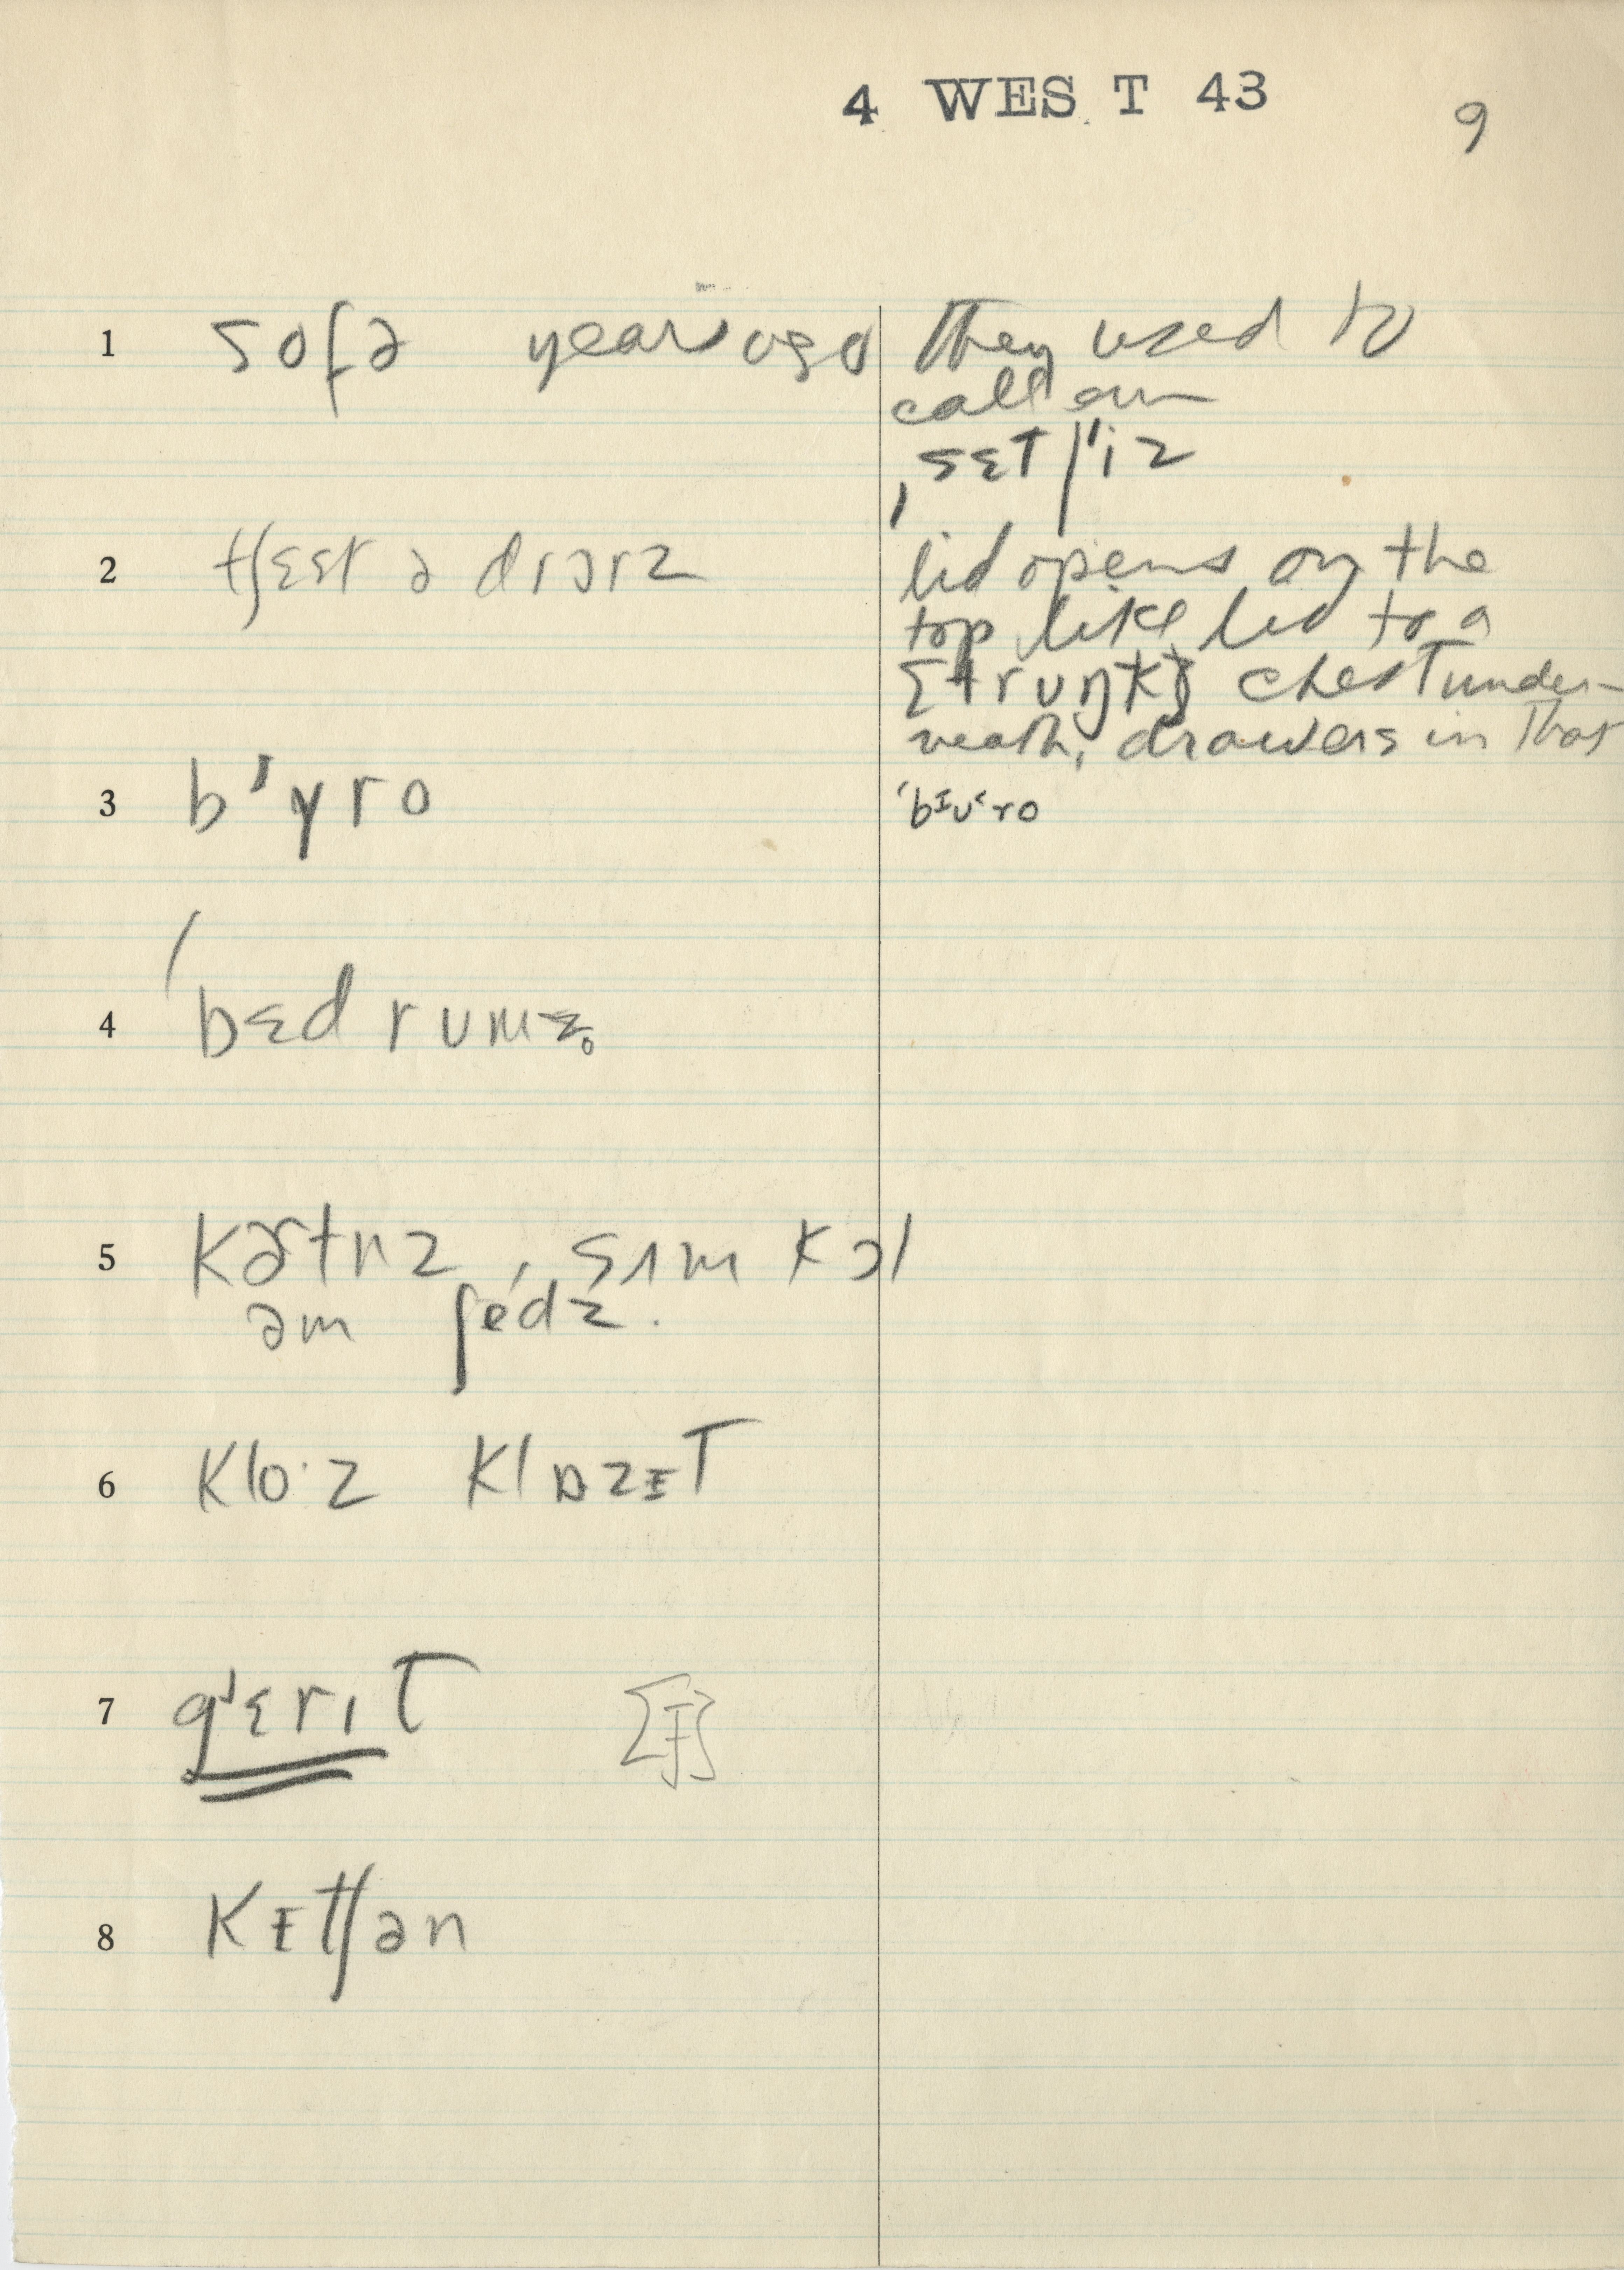 4 WEST 43
9
1 sofə years ago They used to
call em
ˌsɛtˈiz
2 tʃɛst ə drɔrz lid opens on the
top like lid to a
[trʌŋk] chest under-
neath, drawers in that
3 bˈyro ˈbɪuˑro
4 ˈbɛd rumz̥
5 kɝtnz, sʌm kɔl
əm ʃedz.
6 klo·z klɒzɪt
7 gˈɛrɪt
8 kɪtʃən